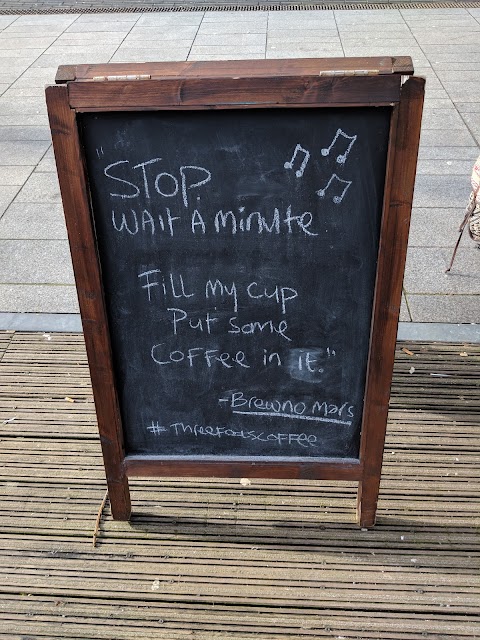 "STOP
WAIT A MINUTE
Fill my cup
Put some
Coffee in it."
-Brewno Mars
#THREEFOOLSCOFFEE